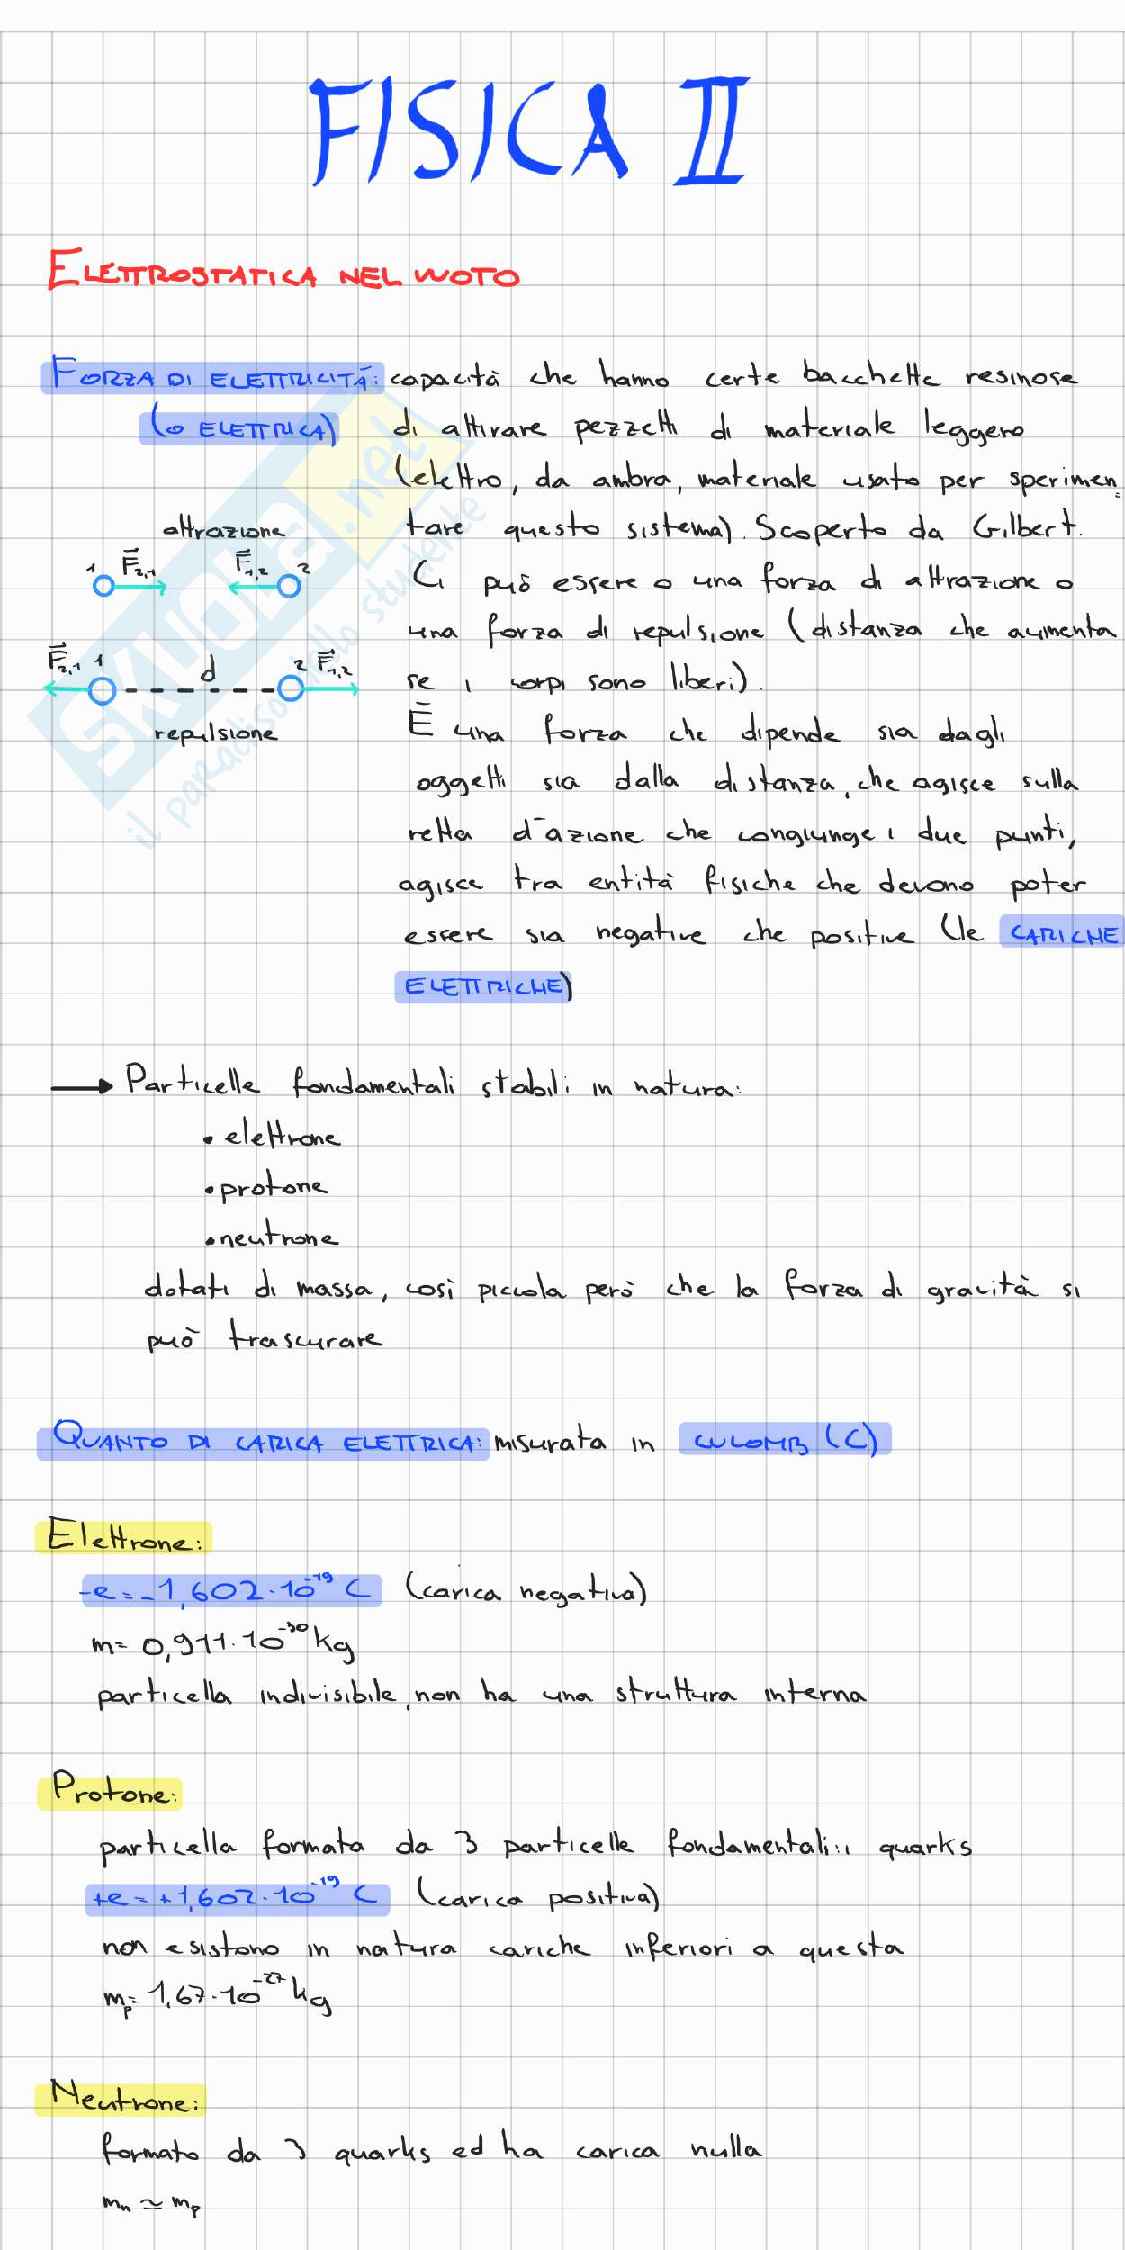 FISICA II
ELETTROSTATICA NEL VUOTO
FORZA DI ELETTRICITÁ: capacità che hanno certe bacchette resinose
(O ELETTRICA) di attirare pezzetti di materiale leggero
(elettro, da ambra, materiale usato per sperimen.
attrazione tare questo sistema). Scoperto da Gilbert.
1 F2,1 F1,2 2 Ci può essere o una forza di attrazione o
una forza di repulsione (distanza che aumenta
F2,1 1 d 2 F1,2 se i corpi sono liberi).
repulsione È una forza che dipende sia dagli
oggetti sia dalla distanza, che agisce sulla
retta d'azione che congiunge i due punti,
agisce tra entità fisiche che devono poter
essere sia negative che positive (le CARICHE
ELETTRICHE)
SKUOLA.net
il paradiso dello studente
→ Particelle fondamentali stabili in natura:
• elettrone
• protone
• neutrone
dotati di massa, così piccola però che la forza di gravità si
può trascurare
QUANTO DI CARICA ELETTRICA: misurata in CULOMB (C)
Elettrone:
-e = -1,602·10⁻¹⁹ C (carica negativa)
m = 0,911·10⁻³⁰ kg
particella indivisibile, non ha una struttura interna
Protone:
particella formata da 3 particelle fondamentali: i quarks
+e = +1,602·10⁻¹⁹ C (carica positiva)
non esistono in natura cariche inferiori a questa
mp = 1,67·10⁻²⁷ kg
Neutrone:
formato da 3 quarks ed ha carica nulla
mn ≃ mp